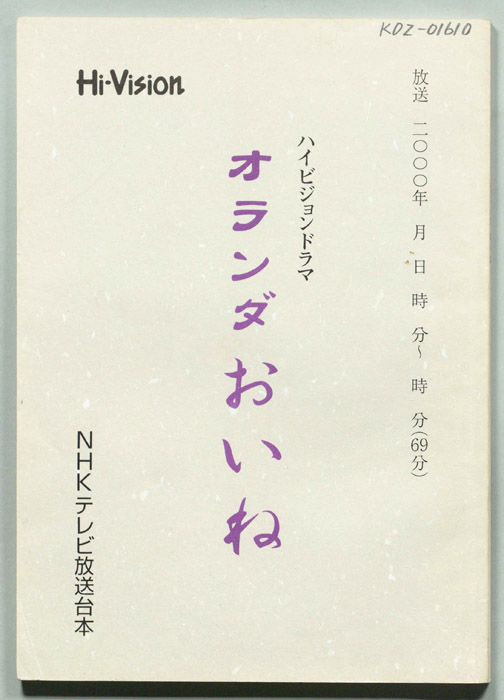 KDZ-01610
Hi-Vision
放送 二〇〇〇年 月 日 時 分〜 時 分(69分)
ハイビジョンドラマ
オランダおいね
NHKテレビ放送台本